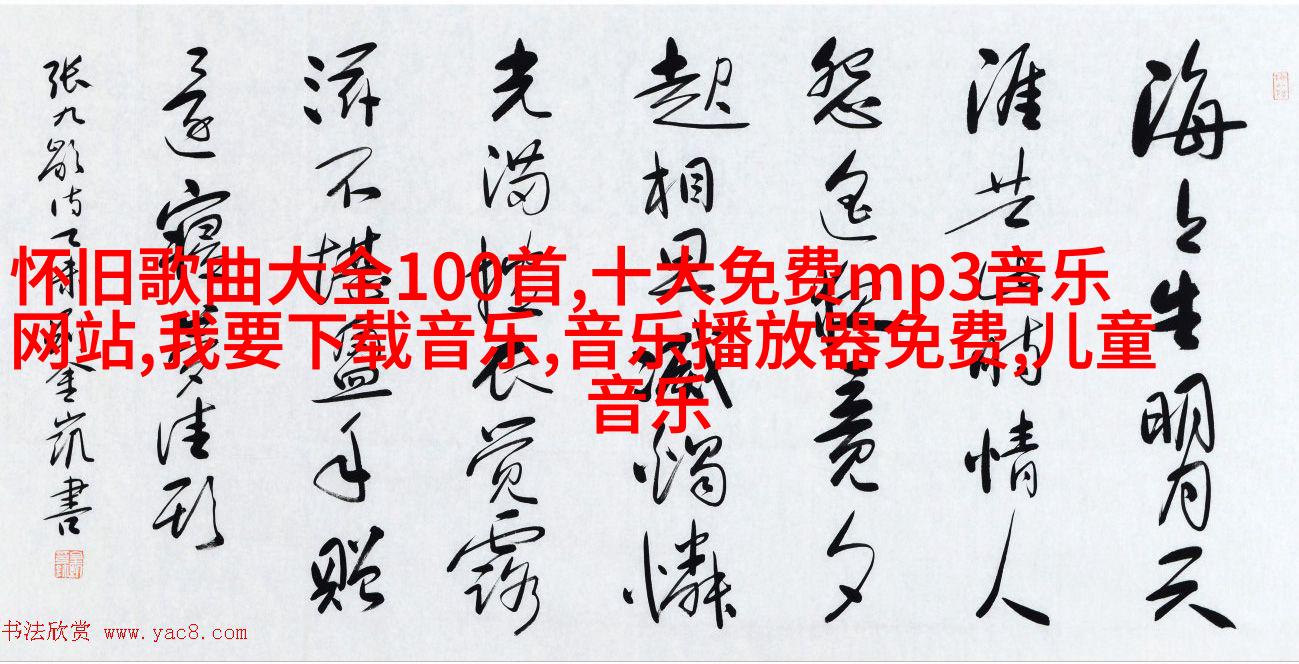 怀旧歌曲大全100首,十大免费mp3音乐
网站,我要下载音乐,音乐播放器免费,儿童
音乐
海上生明月天
涯共此时情人
怨遥夜竟夕
起相思滅燭憐
光满披衣觉露
滋不堪盈手赠
还寝夢佳期
张九龄诗 金凯書
书法欣赏 www.yac8.com